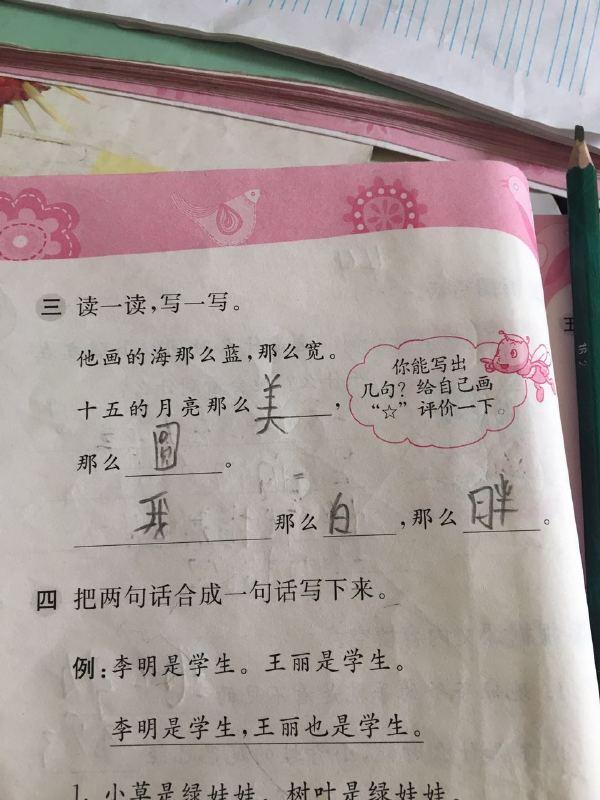 三 读一读,写一写。
他画的海那么蓝,那么宽。
十五的月亮那么美,
那么圆。
你能写出
几句?给自己画
“☆”评价一下。
我那么白,那么胖。
四 把两句话合成一句话写下来。
例:李明是学生。王丽是学生。
李明是学生,王丽也是学生。
1. 小草是绿娃娃。树叶是绿娃娃。